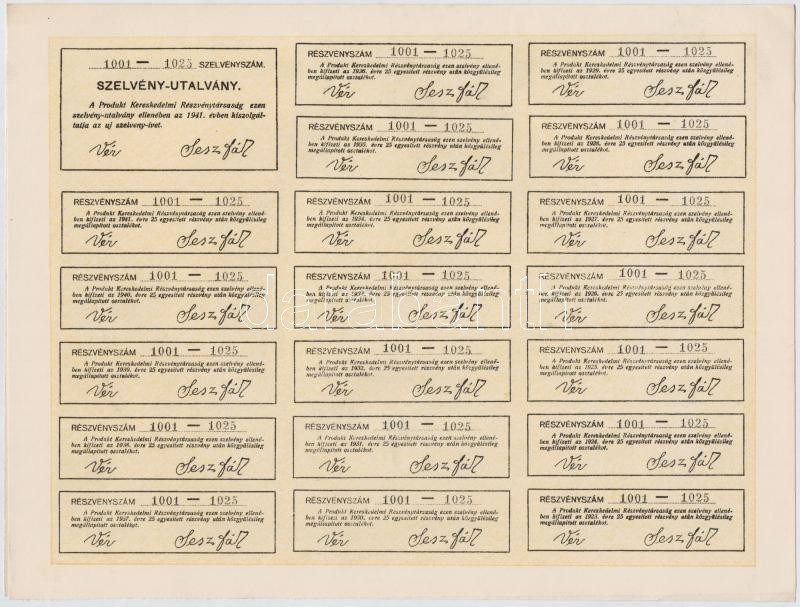 1001 — 1025 SZELVÉNYSZÁM.
SZELVÉNY-UTALVÁNY.
A Produkt Kereskedelmi Részvénytársaság ezen
szelvény-utalvány ellenében az 1941. évben kiszolgál-
tatja az uj szelvény-ivet.
Vér Sesz Pál
RÉSZVÉNYSZÁM 1001 — 1025
A Produkt Kereskedelmi Részvénytársaság ezen szelvény ellené-
ben kifizeti az 1941. évre 25 egyesitett részvény után közgyülésileg
megállapitott osztalékot.
Vér Sesz Pál
RÉSZVÉNYSZÁM 1001 — 1025
A Produkt Kereskedelmi Részvénytársaság ezen szelvény ellené-
ben kifizeti az 1940. évre 25 egyesitett részvény után közgyülésileg
megállapitott osztalékot.
Vér Sesz Pál
RÉSZVÉNYSZÁM 1001 — 1025
A Produkt Kereskedelmi Részvénytársaság ezen szelvény ellené-
ben kifizeti az 1939. évre 25 egyesitett részvény után közgyülésileg
megállapitott osztalékot.
Vér Sesz Pál
RÉSZVÉNYSZÁM 1001 — 1025
A Produkt Kereskedelmi Részvénytársaság ezen szelvény ellené-
ben kifizeti az 1938. évre 25 egyesitett részvény után közgyülésileg
megállapitott osztalékot.
Vér Sesz Pál
RÉSZVÉNYSZÁM 1001 — 1025
A Produkt Kereskedelmi Részvénytársaság ezen szelvény ellené-
ben kifizeti az 1937. évre 25 egyesitett részvény után közgyülésileg
megállapitott osztalékot.
Vér Sesz Pál
RÉSZVÉNYSZÁM 1001 — 1025
A Produkt Kereskedelmi Részvénytársaság ezen szelvény ellené-
ben kifizeti az 1936. évre 25 egyesitett részvény után közgyülésileg
megállapitott osztalékot.
Vér Sesz Pál
RÉSZVÉNYSZÁM 1001 — 1025
A Produkt Kereskedelmi Részvénytársaság ezen szelvény ellené-
ben kifizeti az 1935. évre 25 egyesitett részvény után közgyülésileg
megállapitott osztalékot.
Vér Sesz Pál
RÉSZVÉNYSZÁM 1001 — 1025
A Produkt Kereskedelmi Részvénytársaság ezen szelvény ellené-
ben kifizeti az 1934. évre 25 egyesitett részvény után közgyülésileg
megállapitott osztalékot.
Vér Sesz Pál
RÉSZVÉNYSZÁM 1001 — 1025
A Produkt Kereskedelmi Részvénytársaság ezen szelvény ellené-
ben kifizeti az 1933. évre 25 egyesitett részvény után közgyülésileg
megállapitott osztalékot.
Vér Sesz Pál
RÉSZVÉNYSZÁM 1001 — 1025
A Produkt Kereskedelmi Részvénytársaság ezen szelvény ellené-
ben kifizeti az 1932. évre 25 egyesitett részvény után közgyülésileg
megállapitott osztalékot.
Vér Sesz Pál
RÉSZVÉNYSZÁM 1001 — 1025
A Produkt Kereskedelmi Részvénytársaság ezen szelvény ellené-
ben kifizeti az 1931. évre 25 egyesitett részvény után közgyülésileg
megállapitott osztalékot.
Vér Sesz Pál
RÉSZVÉNYSZÁM 1001 — 1025
A Produkt Kereskedelmi Részvénytársaság ezen szelvény ellené-
ben kifizeti az 1930. évre 25 egyesitett részvény után közgyülésileg
megállapitott osztalékot.
Vér Sesz Pál
RÉSZVÉNYSZÁM 1001 — 1025
A Produkt Kereskedelmi Részvénytársaság ezen szelvény ellené-
ben kifizeti az 1929. évre 25 egyesitett részvény után közgyülésileg
megállapitott osztalékot.
Vér Sesz Pál
RÉSZVÉNYSZÁM 1001 — 1025
A Produkt Kereskedelmi Részvénytársaság ezen szelvény ellené-
ben kifizeti az 1928. évre 25 egyesitett részvény után közgyülésileg
megállapitott osztalékot.
Vér Sesz Pál
RÉSZVÉNYSZÁM 1001 — 1025
A Produkt Kereskedelmi Részvénytársaság ezen szelvény ellené-
ben kifizeti az 1927. évre 25 egyesitett részvény után közgyülésileg
megállapitott osztalékot.
Vér Sesz Pál
RÉSZVÉNYSZÁM 1001 — 1025
A Produkt Kereskedelmi Részvénytársaság ezen szelvény ellené-
ben kifizeti az 1926. évre 25 egyesitett részvény után közgyülésileg
megállapitott osztalékot.
Vér Sesz Pál
RÉSZVÉNYSZÁM 1001 — 1025
A Produkt Kereskedelmi Részvénytársaság ezen szelvény ellené-
ben kifizeti az 1925. évre 25 egyesitett részvény után közgyülésileg
megállapitott osztalékot.
Vér Sesz Pál
RÉSZVÉNYSZÁM 1001 — 1025
A Produkt Kereskedelmi Részvénytársaság ezen szelvény ellené-
ben kifizeti az 1924. évre 25 egyesitett részvény után közgyülésileg
megállapitott osztalékot.
Vér Sesz Pál
RÉSZVÉNYSZÁM 1001 — 1025
A Produkt Kereskedelmi Részvénytársaság ezen szelvény ellené-
ben kifizeti az 1923. évre 25 egyesitett részvény után közgyülésileg
megállapitott osztalékot.
Vér Sesz Pál